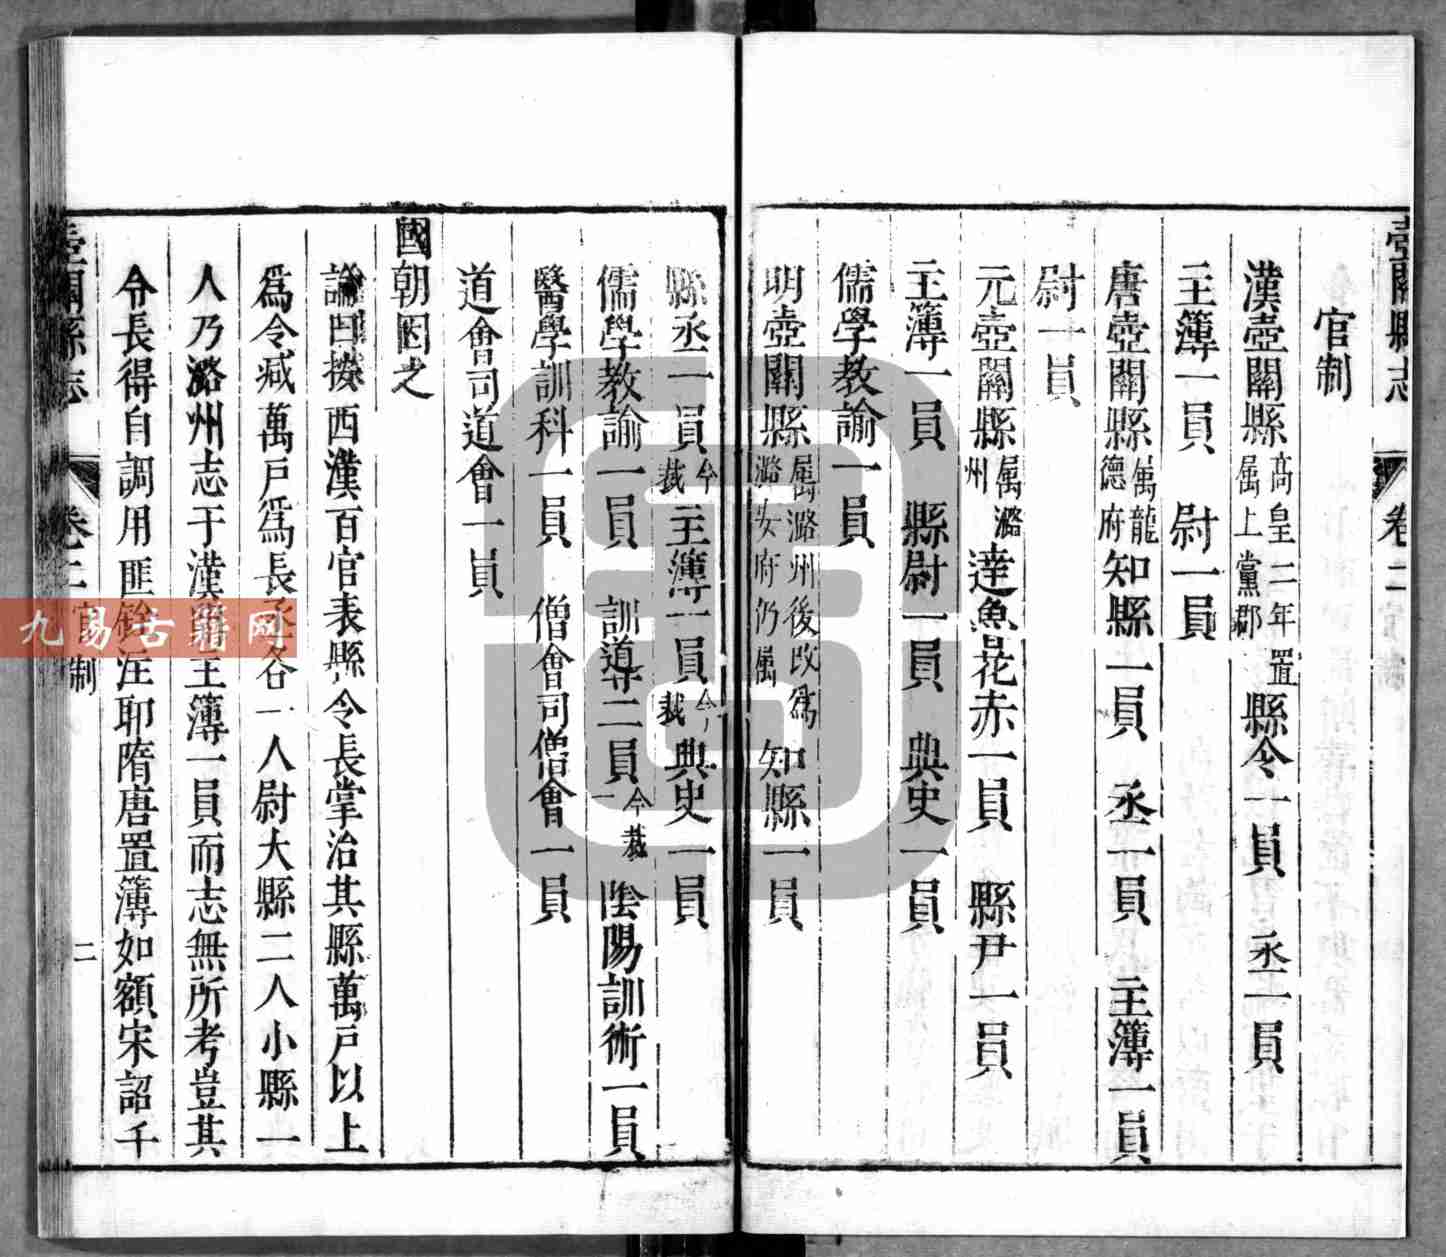 壺關縣志 卷二
官制
漢壺關縣高皇二年置屬上黨郡縣令一員 丞一員
主簿一員 尉一員
唐壺關縣属龍德府知縣一員 丞一員 主簿一員
尉一員
元壺關縣属潞州達魯花赤一員 縣尹一員
主簿一員 縣尉一員 典史一員
儒學教諭一員
明壺關縣属潞州後改為潞安府仍属 知縣一員
縣丞一員今裁主簿一員今裁典史一員
儒學教諭一員 訓導二員今裁一 陰陽訓術一員
醫學訓科一員 僧會司僧會一員
道會司道會一員
國朝因之
論曰按西漢百官表縣令長掌治其縣萬戶以上
為令減萬戶為長丞各一人尉大縣二人小縣一
人乃潞州志于漢置主簿一員而志無所考豈其
令長得自調用匪銓注耶隋唐置簿如額宋詔千
壺關縣志 卷二 官制 二
九易古籍网